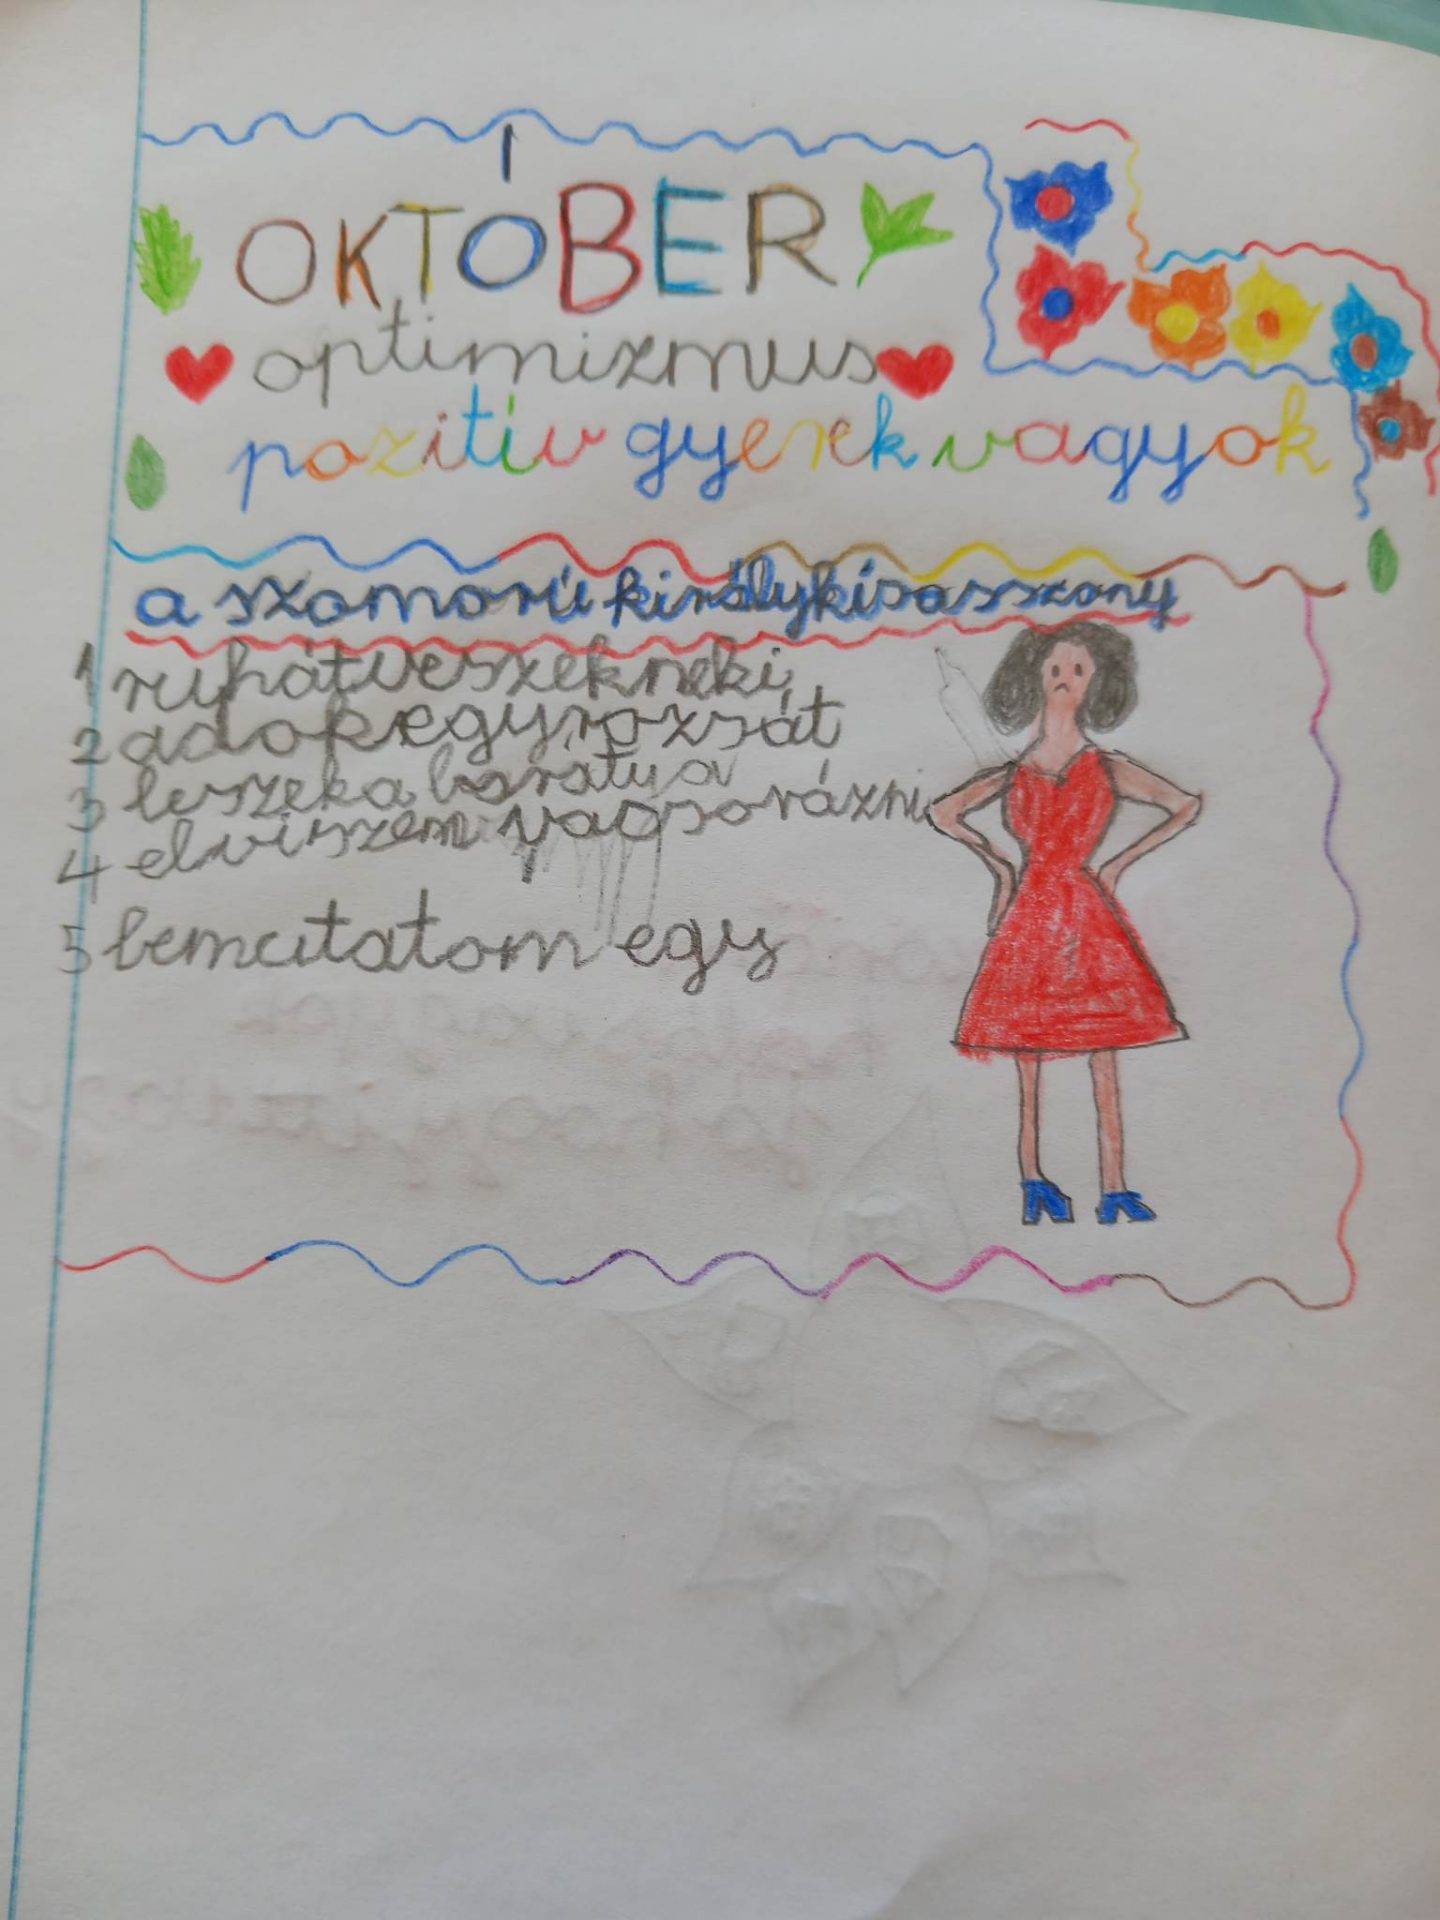 OKTÓBER
optimizmus
pozitív gyerek vagyok
a szomorú királykisasszony
1 ruhát veszek neki
2 adok egy rozsát
3 leszek a baratja
4 elviszem vacsorázni
5 bemutatom egy